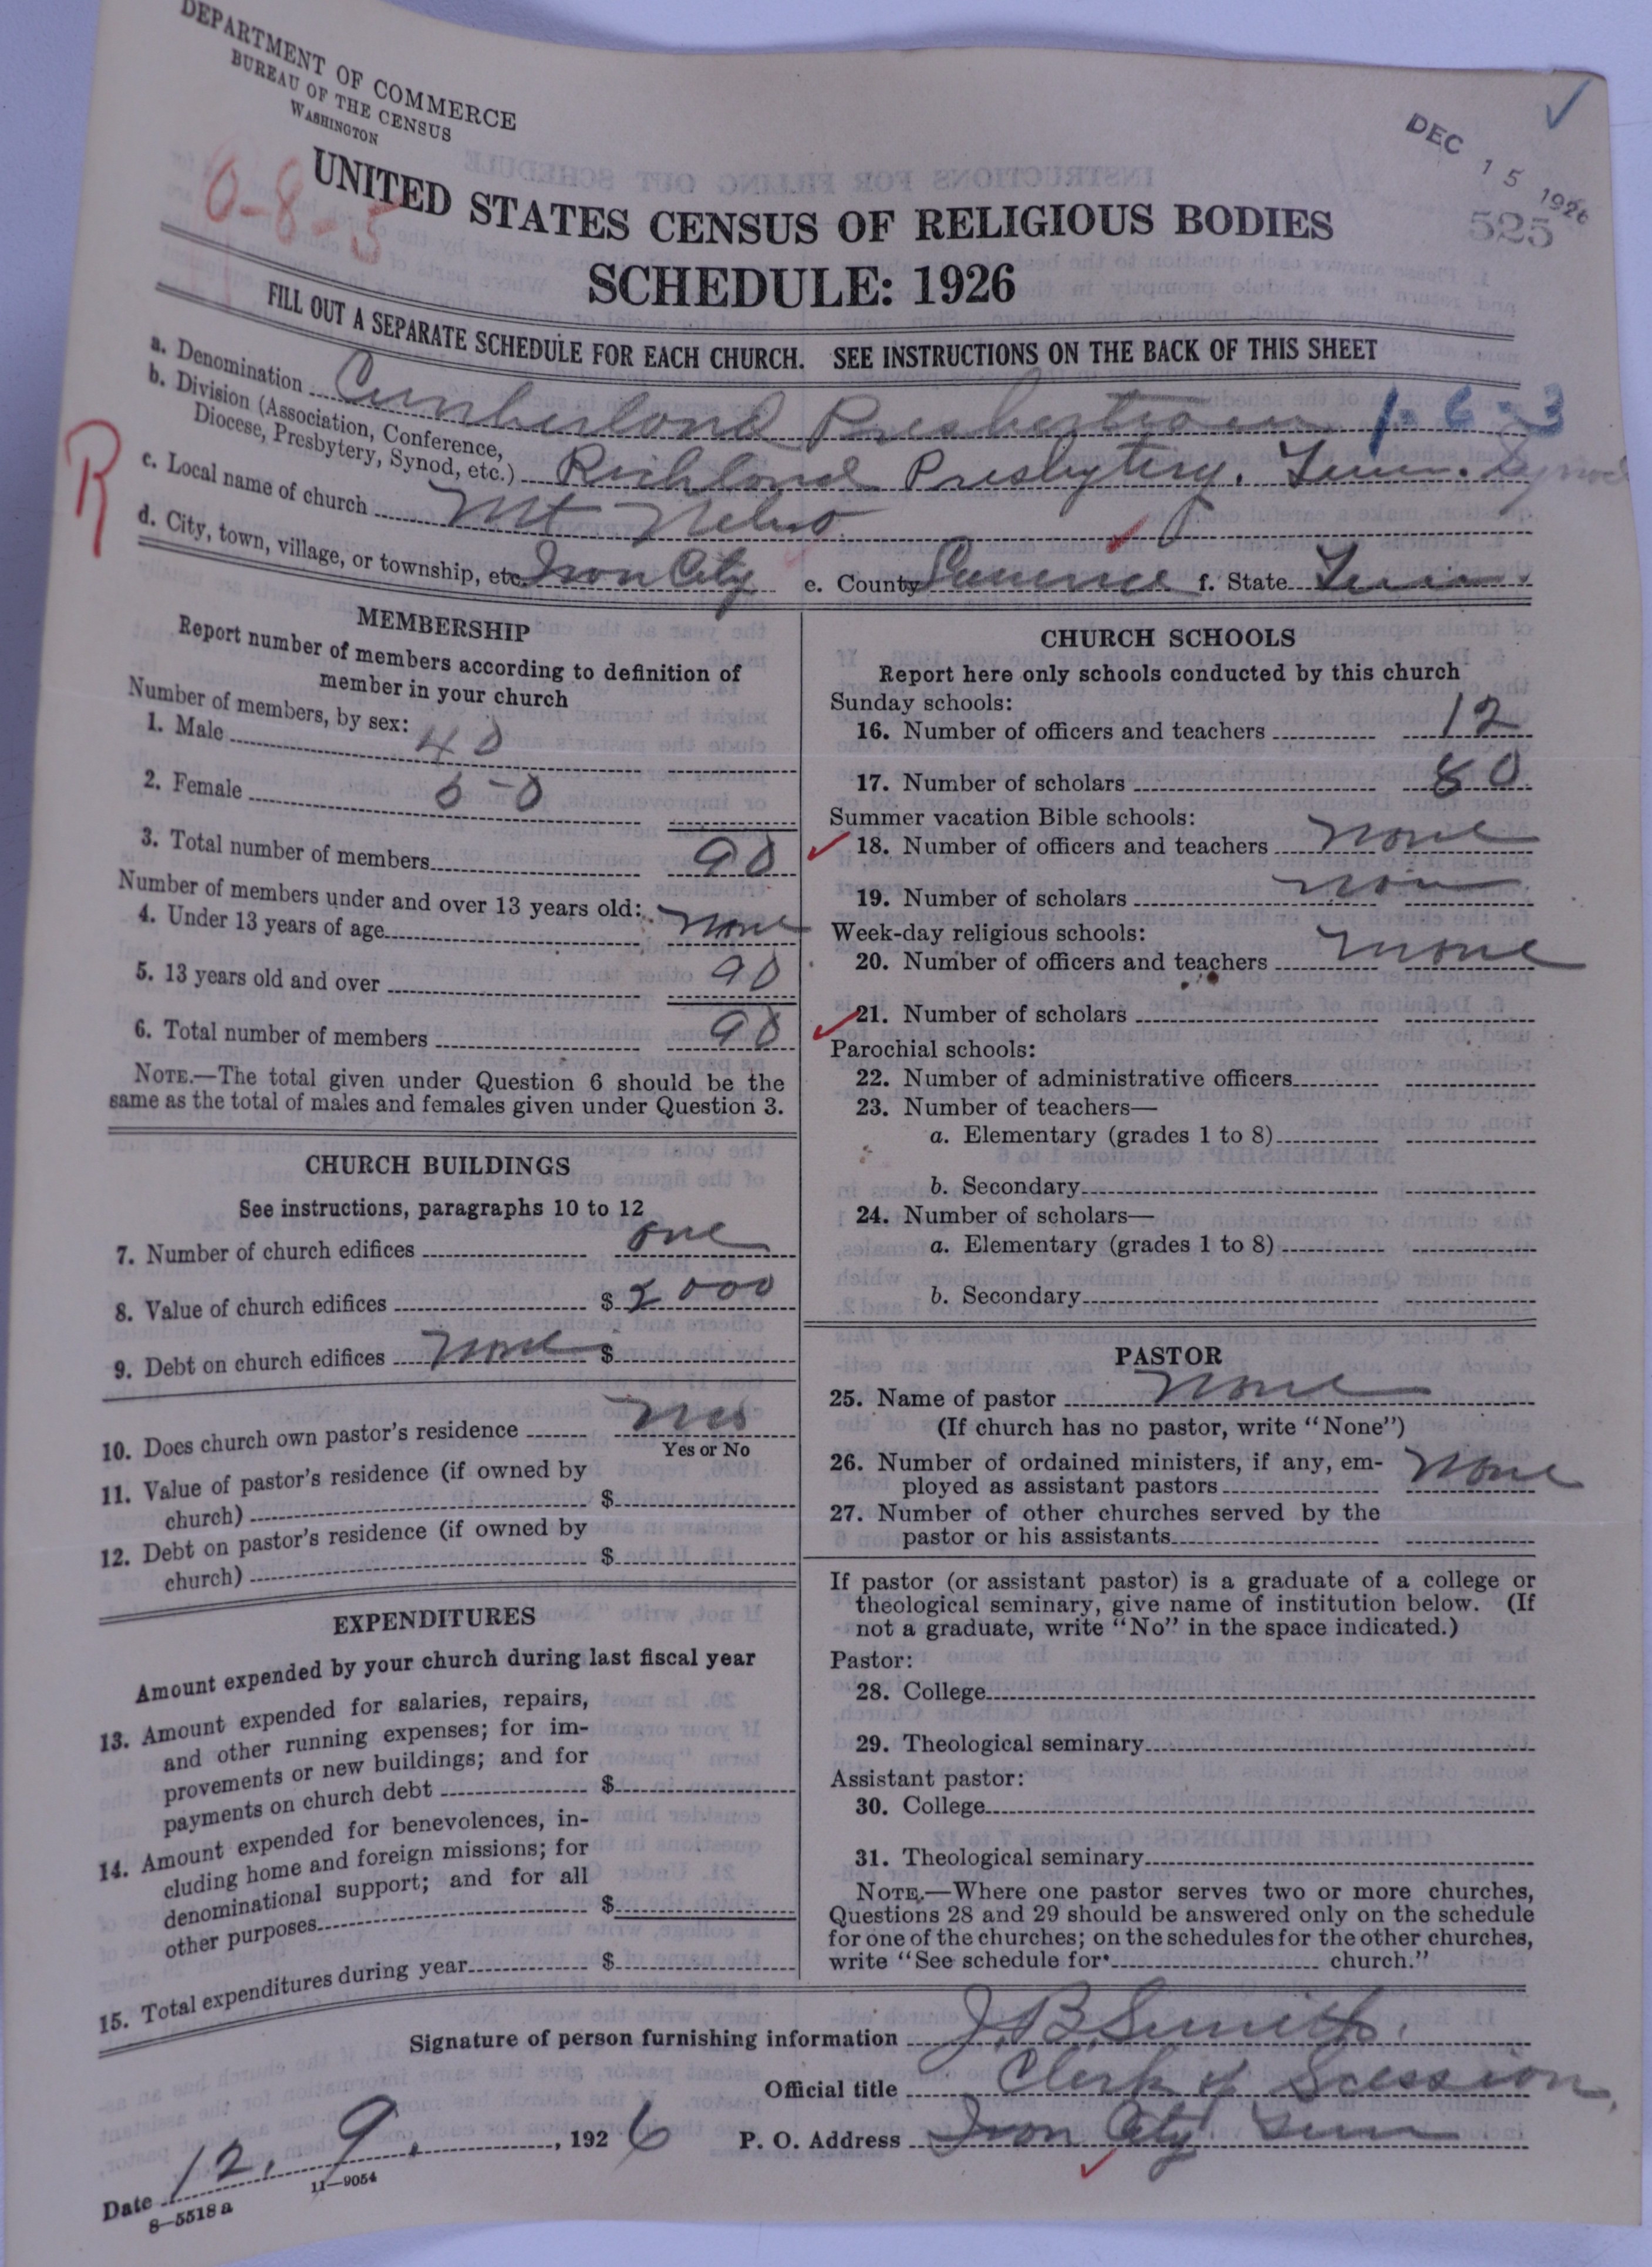 DEPARTMENT OF COMMERCE
BUREAU OF THE CENSUS
WASHINGTON
DEC 15 1926
525
0-8-5
UNITED STATES CENSUS OF RELIGIOUS BODIES
SCHEDULE: 1926
FILL OUT A SEPARATE SCHEDULE FOR EACH CHURCH. SEE INSTRUCTIONS ON THE BACK OF THIS SHEET
a. Denomination Cumberland Presbyterian 1-6-3
b. Division (Association, Conference,
Diocese, Presbytery, Synod, etc.) Richland Presbytery. Tenn. Synod
R
c. Local name of church Mt Nebo
d. City, town, village, or township, etc. Iron City e. County f. State Tenn.
MEMBERSHIP
Report number of members according to definition of
member in your church
Number of members, by sex:
1. Male 40
2. Female 50
3. Total number of members 90
Number of members under and over 13 years old:
4. Under 13 years of age none
5. 13 years old and over 90
6. Total number of members 90
NOTE.—The total given under Question 6 should be the
same as the total of males and females given under Question 3.
CHURCH BUILDINGS
See instructions, paragraphs 10 to 12
7. Number of church edifices one
8. Value of church edifices $ 2000
9. Debt on church edifices none $
10. Does church own pastor's residence
Yes or No
11. Value of pastor's residence (if owned by
church) $
12. Debt on pastor's residence (if owned by
church) $
EXPENDITURES
Amount expended by your church during last fiscal year
13. Amount expended for salaries, repairs,
and other running expenses; for im-
provements or new buildings; and for
payments on church debt $
14. Amount expended for benevolences, in-
cluding home and foreign missions; for
denominational support; and for all
other purposes $
15. Total expenditures during year $
CHURCH SCHOOLS
Report here only schools conducted by this church
Sunday schools:
16. Number of officers and teachers 12
17. Number of scholars 80
Summer vacation Bible schools:
18. Number of officers and teachers none
19. Number of scholars non
Week-day religious schools:
20. Number of officers and teachers none
21. Number of scholars
Parochial schools:
22. Number of administrative officers
23. Number of teachers—
a. Elementary (grades 1 to 8)
b. Secondary
24. Number of scholars—
a. Elementary (grades 1 to 8)
b. Secondary
PASTOR
25. Name of pastor none
(If church has no pastor, write "None")
26. Number of ordained ministers, if any, em-
ployed as assistant pastors none
27. Number of other churches served by the
pastor or his assistants
If pastor (or assistant pastor) is a graduate of a college or
theological seminary, give name of institution below. (If
not a graduate, write "No" in the space indicated.)
Pastor:
28. College
29. Theological seminary
Assistant pastor:
30. College
31. Theological seminary
NOTE.—Where one pastor serves two or more churches,
Questions 28 and 29 should be answered only on the schedule
for one of the churches; on the schedules for the other churches,
write "See schedule for church."
Signature of person furnishing information J. B. Smith.
Official title Clerk of Session
Date 12. 9., 1926 P. O. Address Iron City Tenn
8—5518 a
11—9054